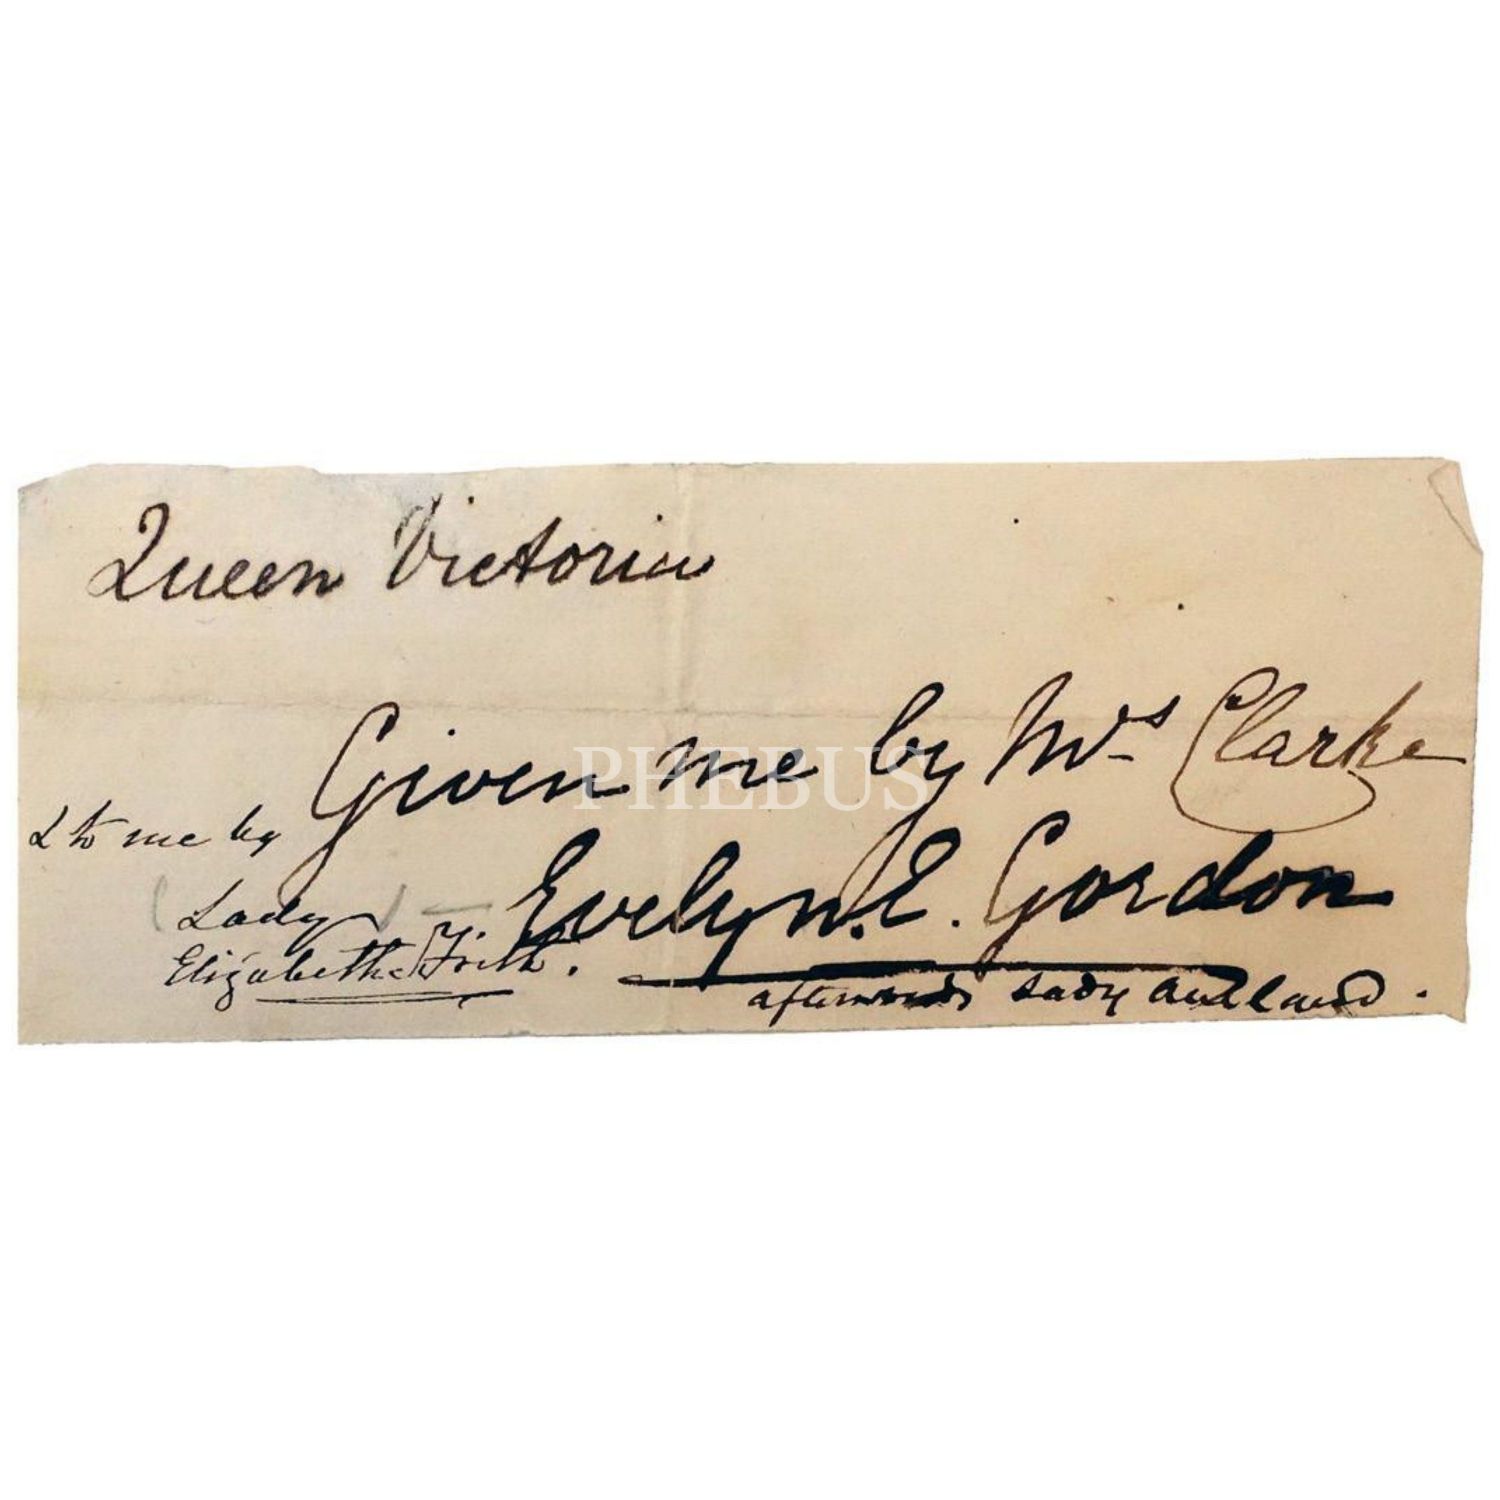 Queen Victoria
Given me by Mrs Clarke
Evelyn. E. Gordon
afterwards Lady Auckland.
& to me by
Lady
Elizabeth Frith.
PHEBUS